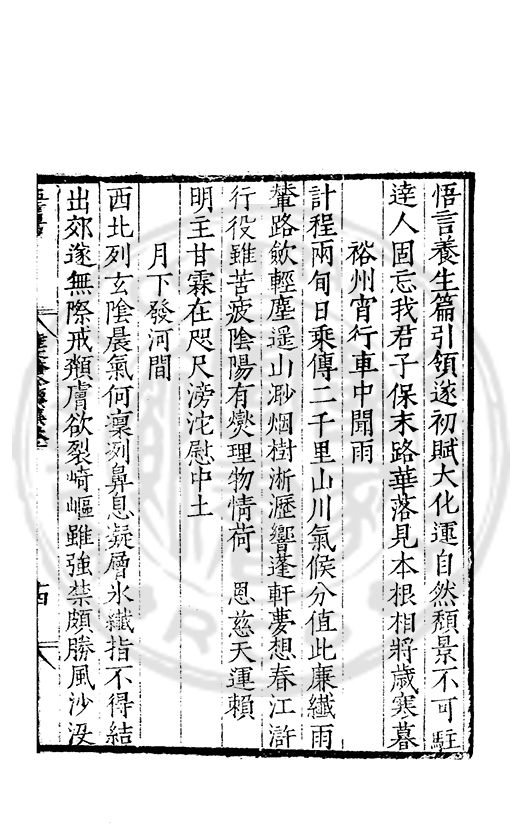 悟言養生篇引領遂初賦大化運自然頹景不可駐
達人固忘我君子保末路華落見本根相將歲寒暮
裕州宵行車中聞雨
計程兩旬日乘傳二千里山川氣候分值此廉纖雨
輦路歛輕塵遥山渺烟樹淅瀝響蓬軒夢想春江滸
行役雖苦疲陰陽有爕理物情荷 恩慈天運賴
明主甘霖在咫尺滂沱慰中土
月下發河間
西北列玄陰晨氣何稟冽鼻息凝層氷纖指不得結
出郊遂無際戒 膚欲裂崎嶇雖強禁頗勝風沙没